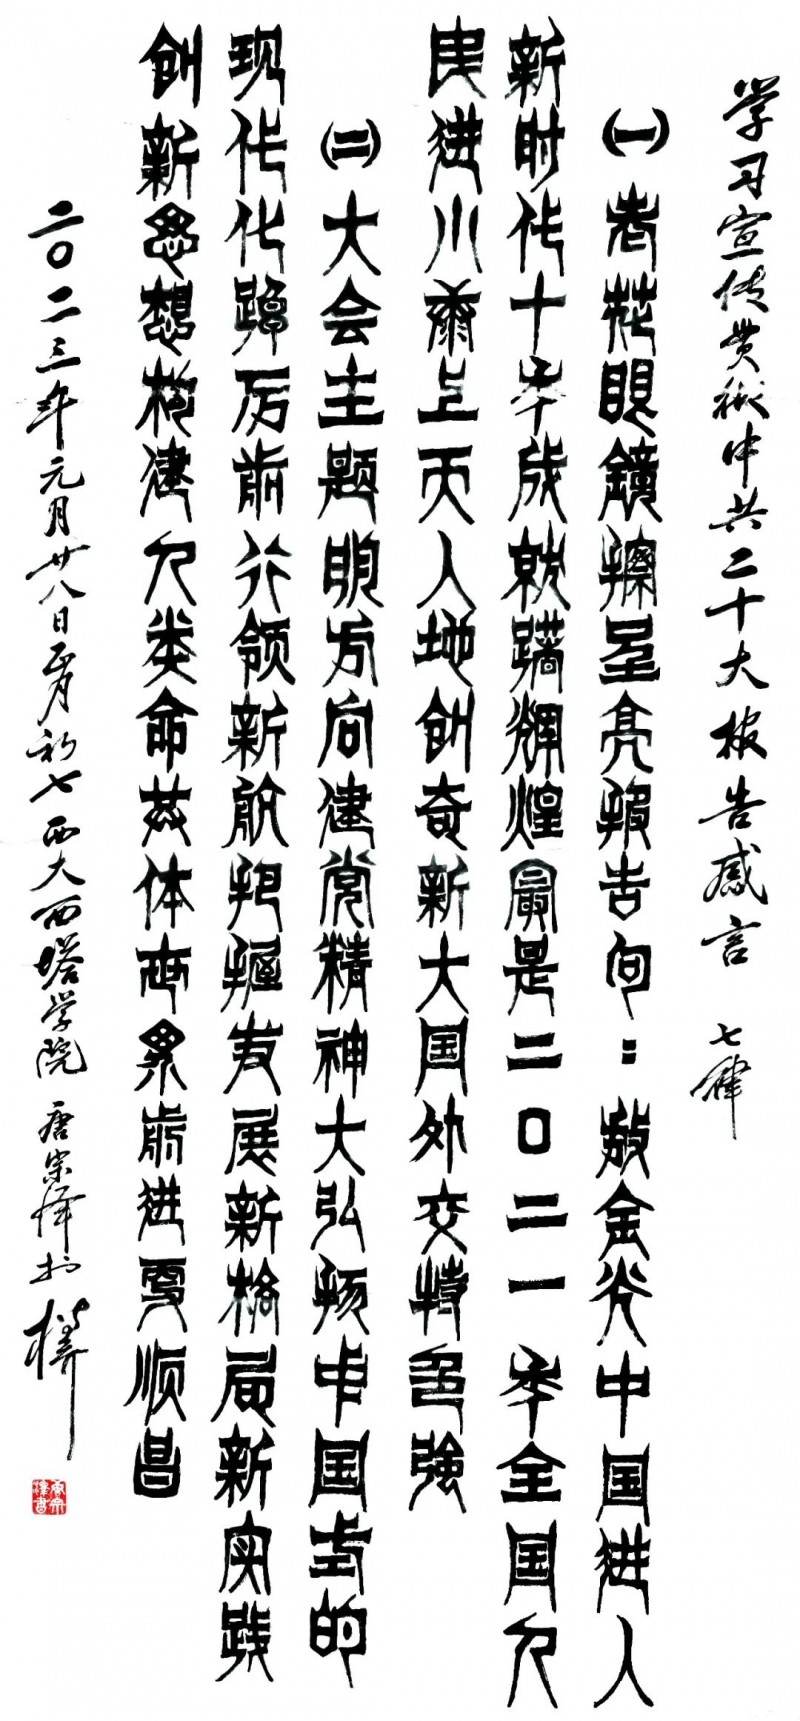 学习宣传贯彻中共二十大报告感言 七律
(一)老花眼鏡擦呈亮报告句：放金光中国进入
新时代十年成就辉煌最是二〇二一年全国人
民进小康上天入地创奇新大国外交特色強
(二)大会主题明方向建党精神大弘扬中国式的
现代化踔厉前行领新航把握发展新格局新实践
创新思想构建人类命共体世界前进更顺昌
二〇二三年元月廿八日正月初七西大西塔学院 唐宗泽